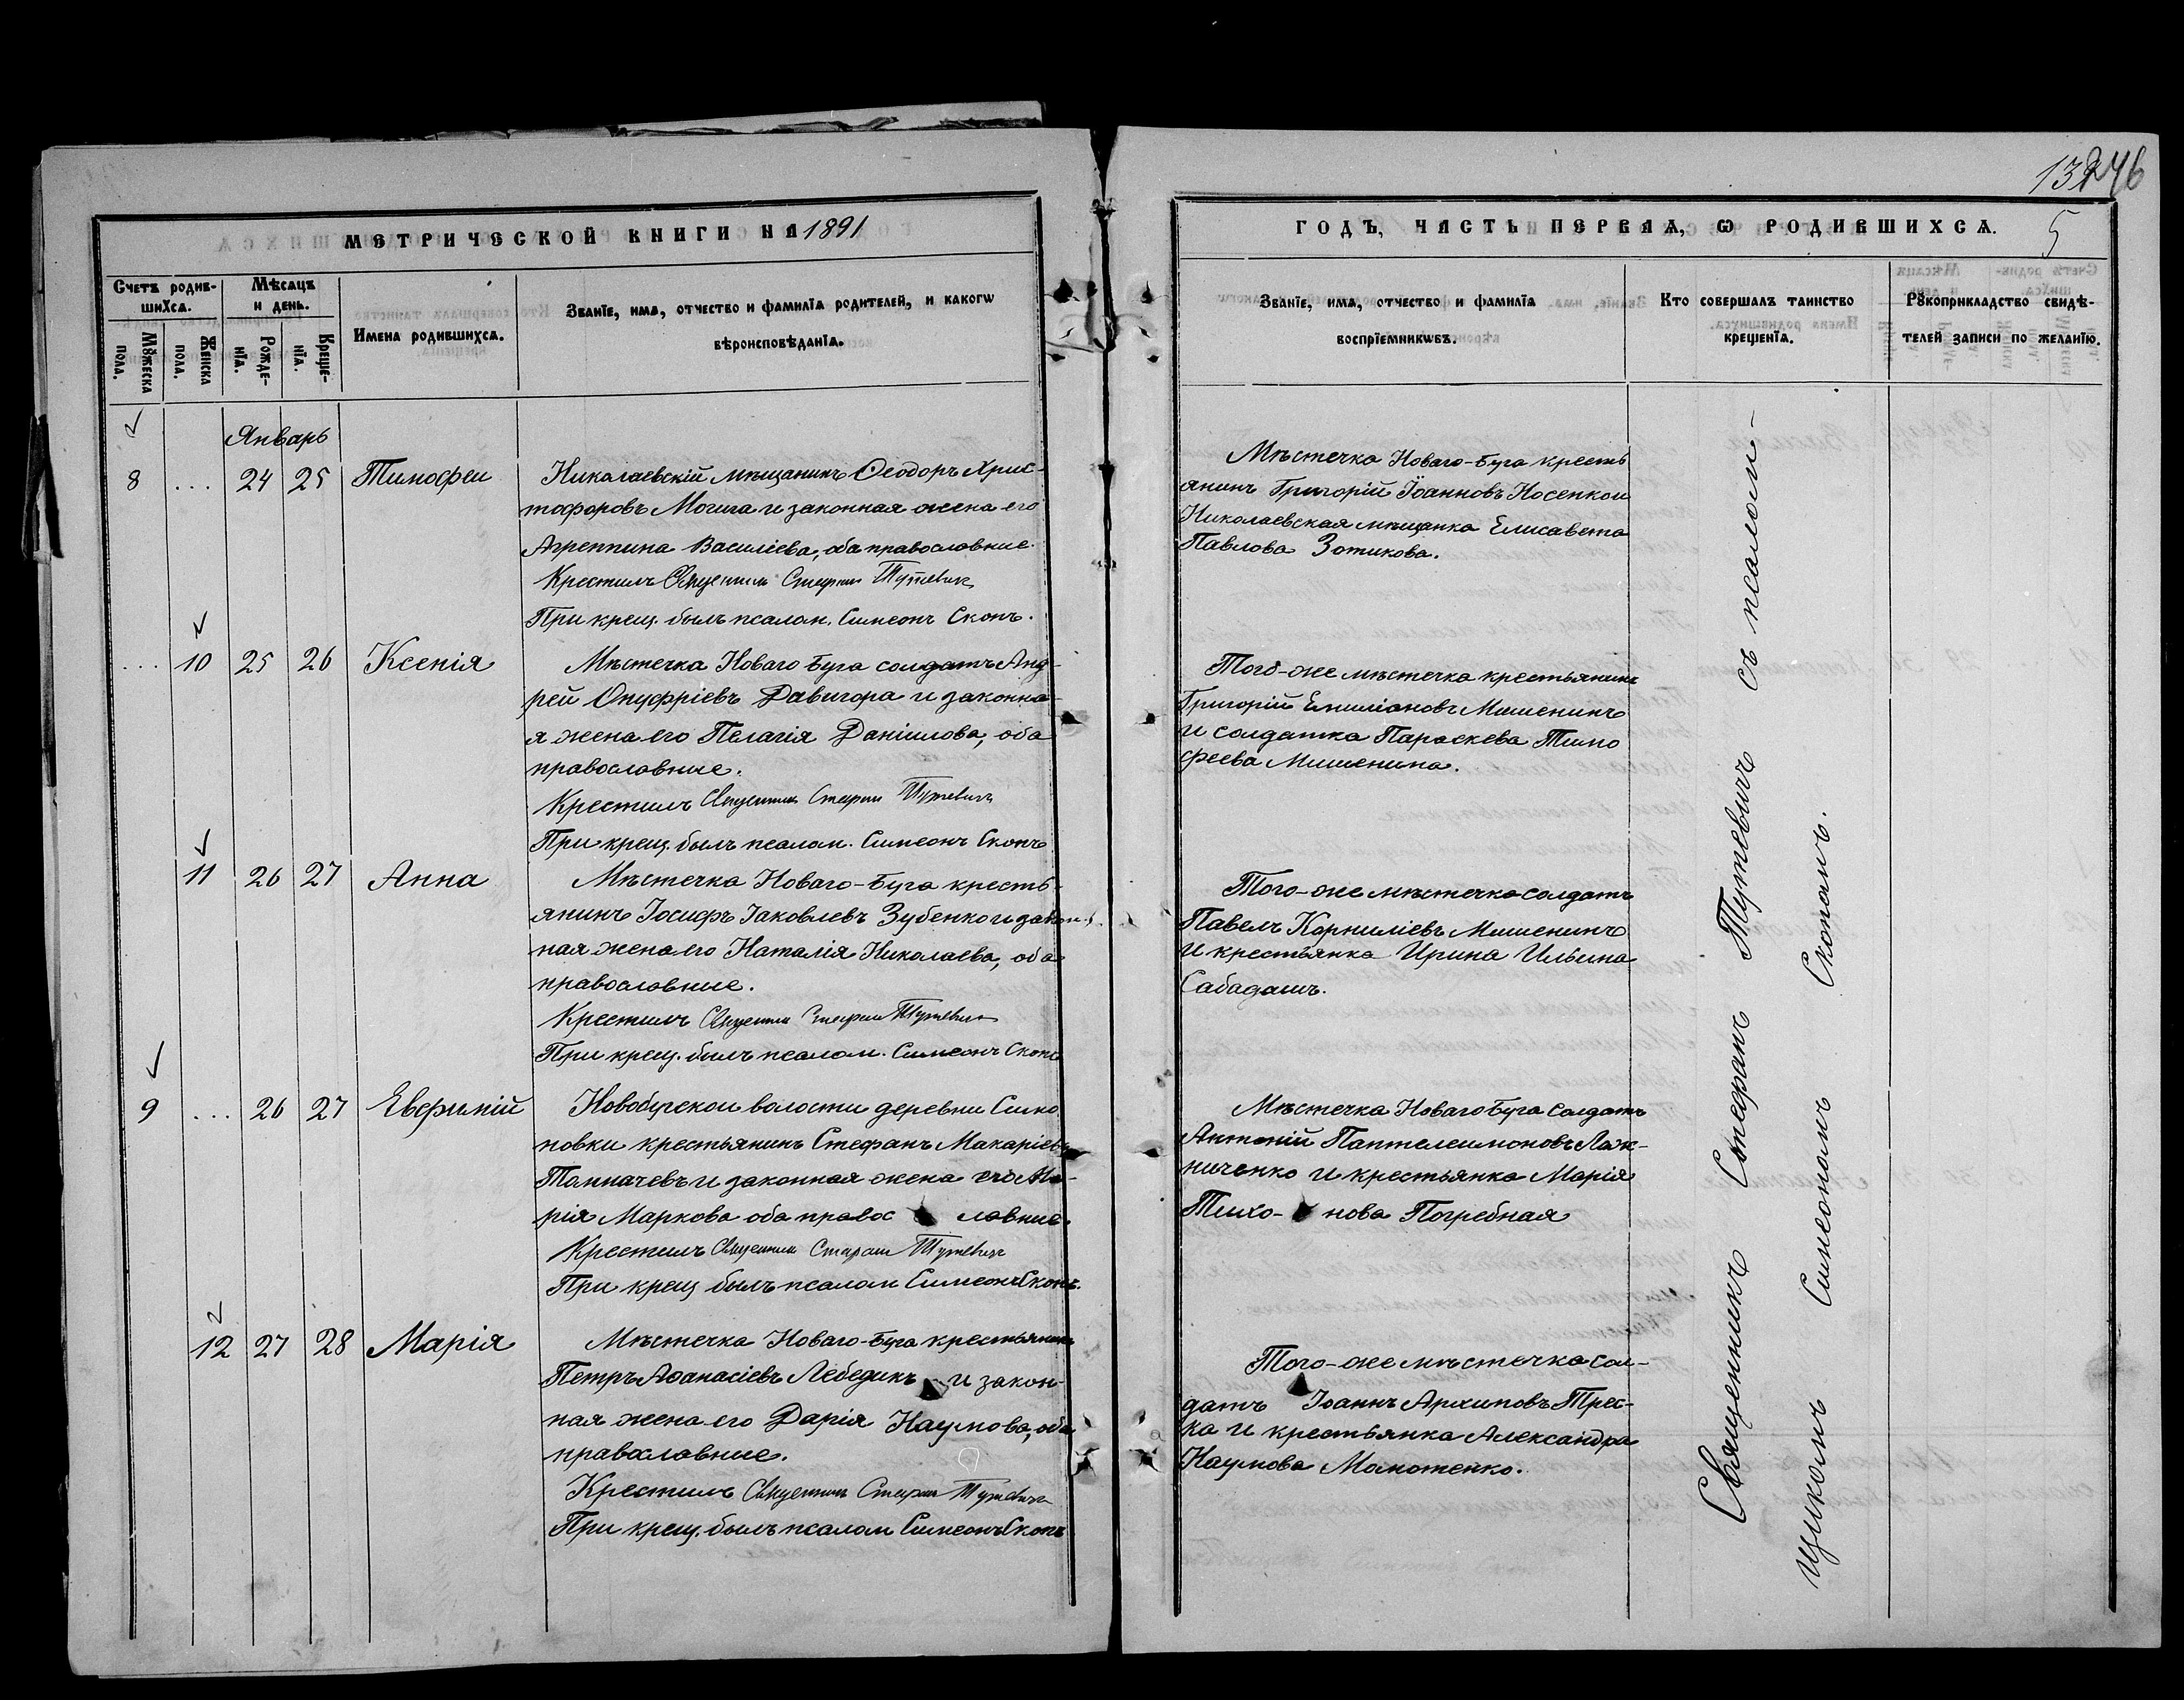 13246
МЕТРИЧЕСКОЙ КНИГИ НА 1891
ГОДЪ, ЧАСТЬ ПЕРВАѦ, Ѡ РОДИВШИХСѦ.
5
Счетъ родив-
шихсѧ.
Мѣсѧцъ
и день.
Мꙋжеска
пола.
Женска
пола.
Рожде-
нїѧ.
Креще-
нїѧ.
Имена родившихсѧ.
Званїе, имѧ, отчество и фамилїѧ родителей, и какогѡ
вѣроисповѣданїѧ.
Званїе, имѧ, отчество и фамилїѧ
воспрїемникѡвъ.
Кто совершалъ таинство
крещенїѧ.
Рꙋкоприкладство свидѣ-
телей записи по желанїю.
Январь
8 ... 24 25 Тимофеи
Николаевскій мѣщанинъ Ѳеодоръ Хрис-
тофоровъ Могила и законная жена его
Агреппина Василіева, оба православные.
Крестилъ Священник Стефан Тутевич
При крещ. былъ псалом. Симеонъ Скопъ.
Мѣстечка Новаго-Буга кресть
янинъ Григорій Іоанновъ Носенко и
Николаевская мѣщанка Елисавета
Павлова Зотикова.
... 10 25 26 Ксенія
Мѣстечка Новаго Буга солдатъ Анд-
рей Онуфріевъ Давигора и законна-
я жена его Пелагія Даніилова, оба
православные.
Крестилъ Священник Стефан Тутевичъ
При крещ. былъ псалом. Симеонъ Скопъ
Того-же мѣстечка крестьянинъ
Григорій Емиліановъ Мишенинъ
и солдатка Параскева Тимо
феева Мишенина.
11 26 27 Анна
Мѣстечка Новаго-Буга кресть-
янинъ Іосифъ Іаковлевъ Зубенко и закон-
ная жена его Наталія Николаева, оба
православные.
Крестилъ Священник Стефан Тутевич
При крещ. былъ псалом. Симеонъ Скопъ
Того-же мѣстечка солдатъ
Павелъ Корниліевъ Мишенинъ
и крестьянка Ирина Ильина
Сабадашъ.
9 ... 26 27 Евфимій
Новобугской волости деревни Симо
новки крестьянинъ Стефанъ Макаріевъ
Толмачевъ и законная жена его Ма-
рія Маркова оба правос лавные.
Крестилъ Священник Стефан Тутевичъ
При крещ былъ псалом Симеонъ Скопъ.
Мѣстечка Новаго Буга солдатъ
Антоній Пантелеимоновъ Лах-
ниченко и крестьянка Марія
Тихо- нова Погребная
12 27 28 Марія
Мѣстечка Новаго-Буга крестьянинъ
Петръ Аѳанасіевъ Лебедикъ и закон-
ная жена его Дарія Наумова, оба
православные.
Крестилъ Священник Стефан Тутевичъ
При крещ. былъ псалом Симеонъ Скопъ
Того-же мѣстечка сол-
датъ Іоаннъ Архиповъ Трес-
ка и крестьянка Александра
Наумова Молотенко.
Священникъ Стефанъ Тутевичъ съ псалом-
щикомъ Симеономъ Скопомъ.